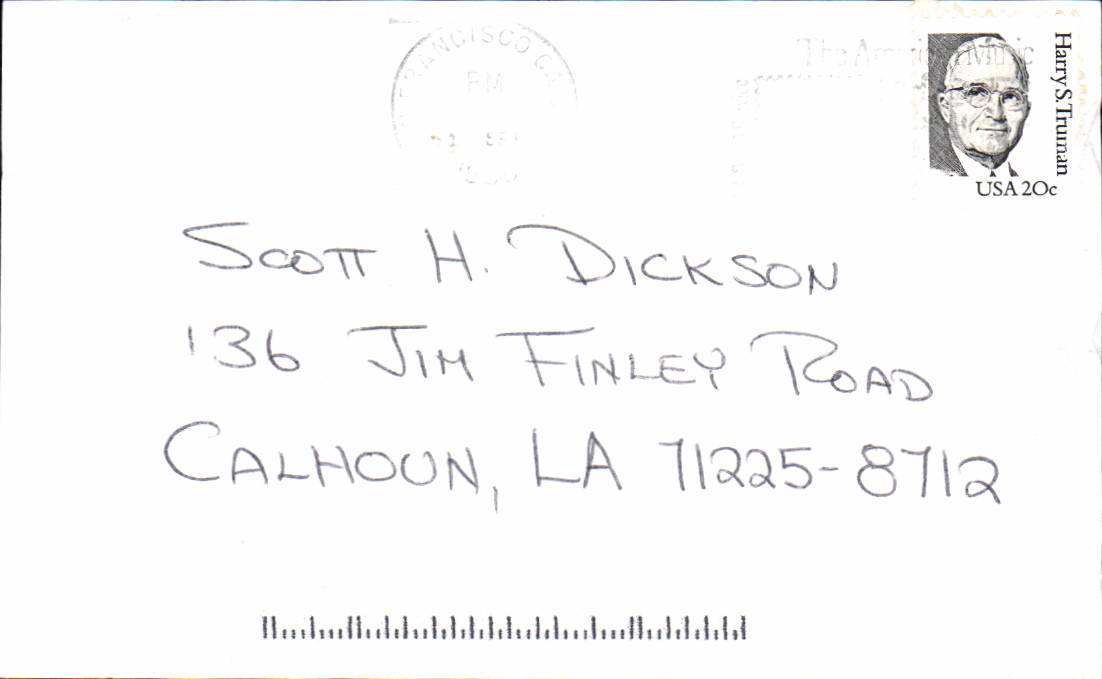 FRANCISCO CA
PM
The American Music
Harry S. Truman
USA 20c
SCOTT H. DICKSON
136 JIM FINLEY ROAD
CALHOUN, LA 71225-8712